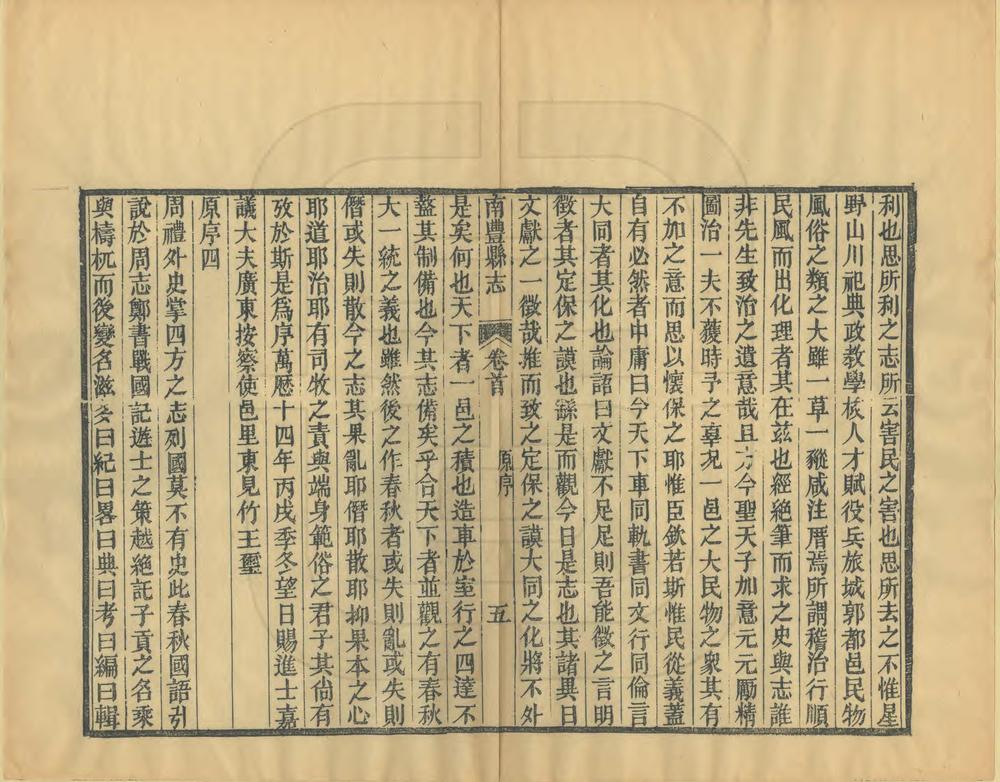 利也思所利之志所云害民之害也思所去之不惟星
野山川祀典政教學核人才賦役兵旅城郭都邑民物
風俗之類之大雖一草一豵咸注厝焉所謂稽治行順
民風而出化理者其在茲也經絕筆而求之史與志誰
非先生致治之遺意哉且方今聖天子加意元元勵精
圖治一夫不蒦時予之辜况一邑之大民物之衆其有
不加之意而思以懷保之耶惟臣欽若斯惟民從義蓋
自有必然者中庸曰今天下車同軌書同文行同倫言
大同者其化也論語曰文獻不足足則吾能徵之言明
徵者其定保之謨也繇是而觀今日是志也其諸異日
文獻之一徵哉推而致之定保之謨大同之化將不外
南豐縣志 卷首 原序 五
是矣何也天下者一邑之積也造車於室行之四達不
盭其制備也今其志備矣乎合天下者並觀之有春秋
大一統之義也雖然後之作春秋者或失則亂或失則
僭或失則散今之志其果亂耶僭耶散耶抑果本之心
耶道耶治耶有司牧之責與端身範俗之君子其尙有
攷於斯是爲序萬曆十四年丙戌季冬望日賜進士嘉
議大夫廣東按察使邑里東見竹王璽
原序四
周禮外史掌四方之志列國莫不有史此春秋國語引
說於周志鄭書戰國記遊士之策越絕託子貢之名乘
與檮杌而後變名滋多曰紀曰畧曰典曰考曰編曰輯